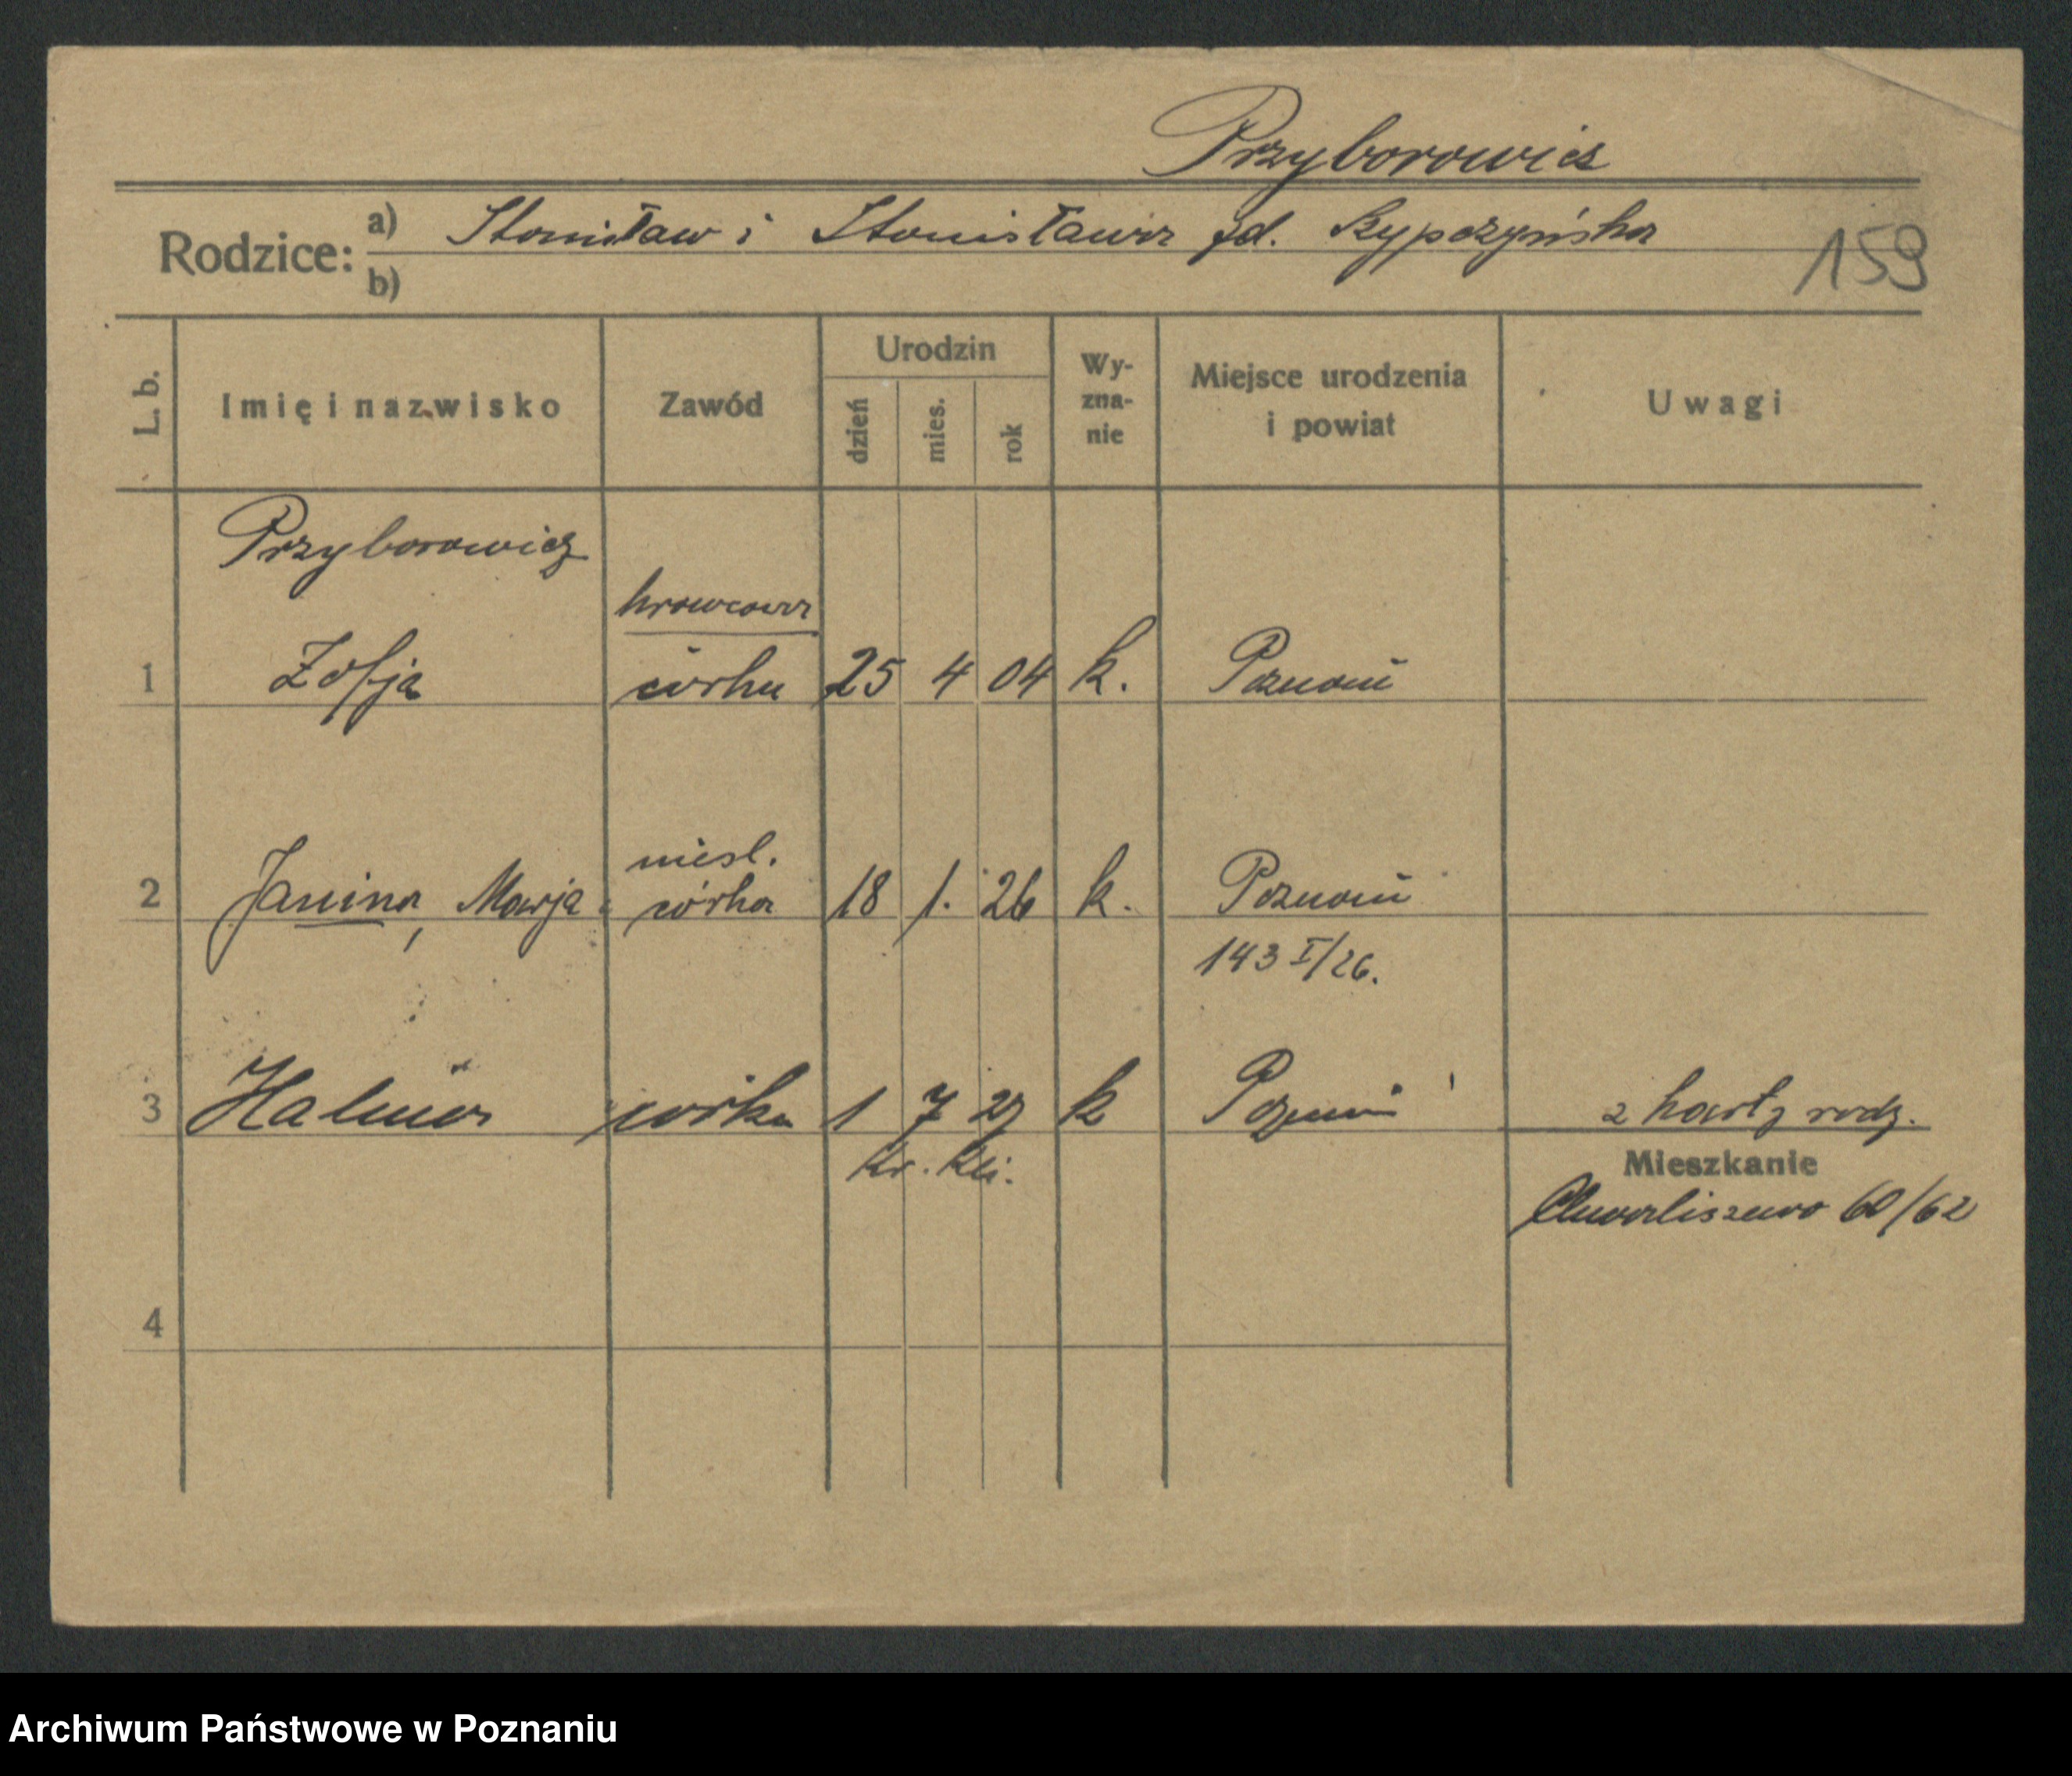 Przyborowicz
Rodzice: a) Stanisław i Stanisława zd. Rypczyńska
b)
159
L. b.
Imię i nazwisko
Zawód
Urodzin
dzień
mies.
rok
Wy-
zna-
nie
Miejsce urodzenia
i powiat
Uwagi
Przyborowicz
krawcowa
1 Zofja córka 25 4 04 k. Poznań
niesl.
2 Janina, Marja córka 18 1. 26 k. Poznań
143 I/26.
3 Halina córka 1 7 k Poznań z karty rodz.
Mieszkanie
Chwaliszewo 60/62
4
Archiwum Państwowe w Poznaniu